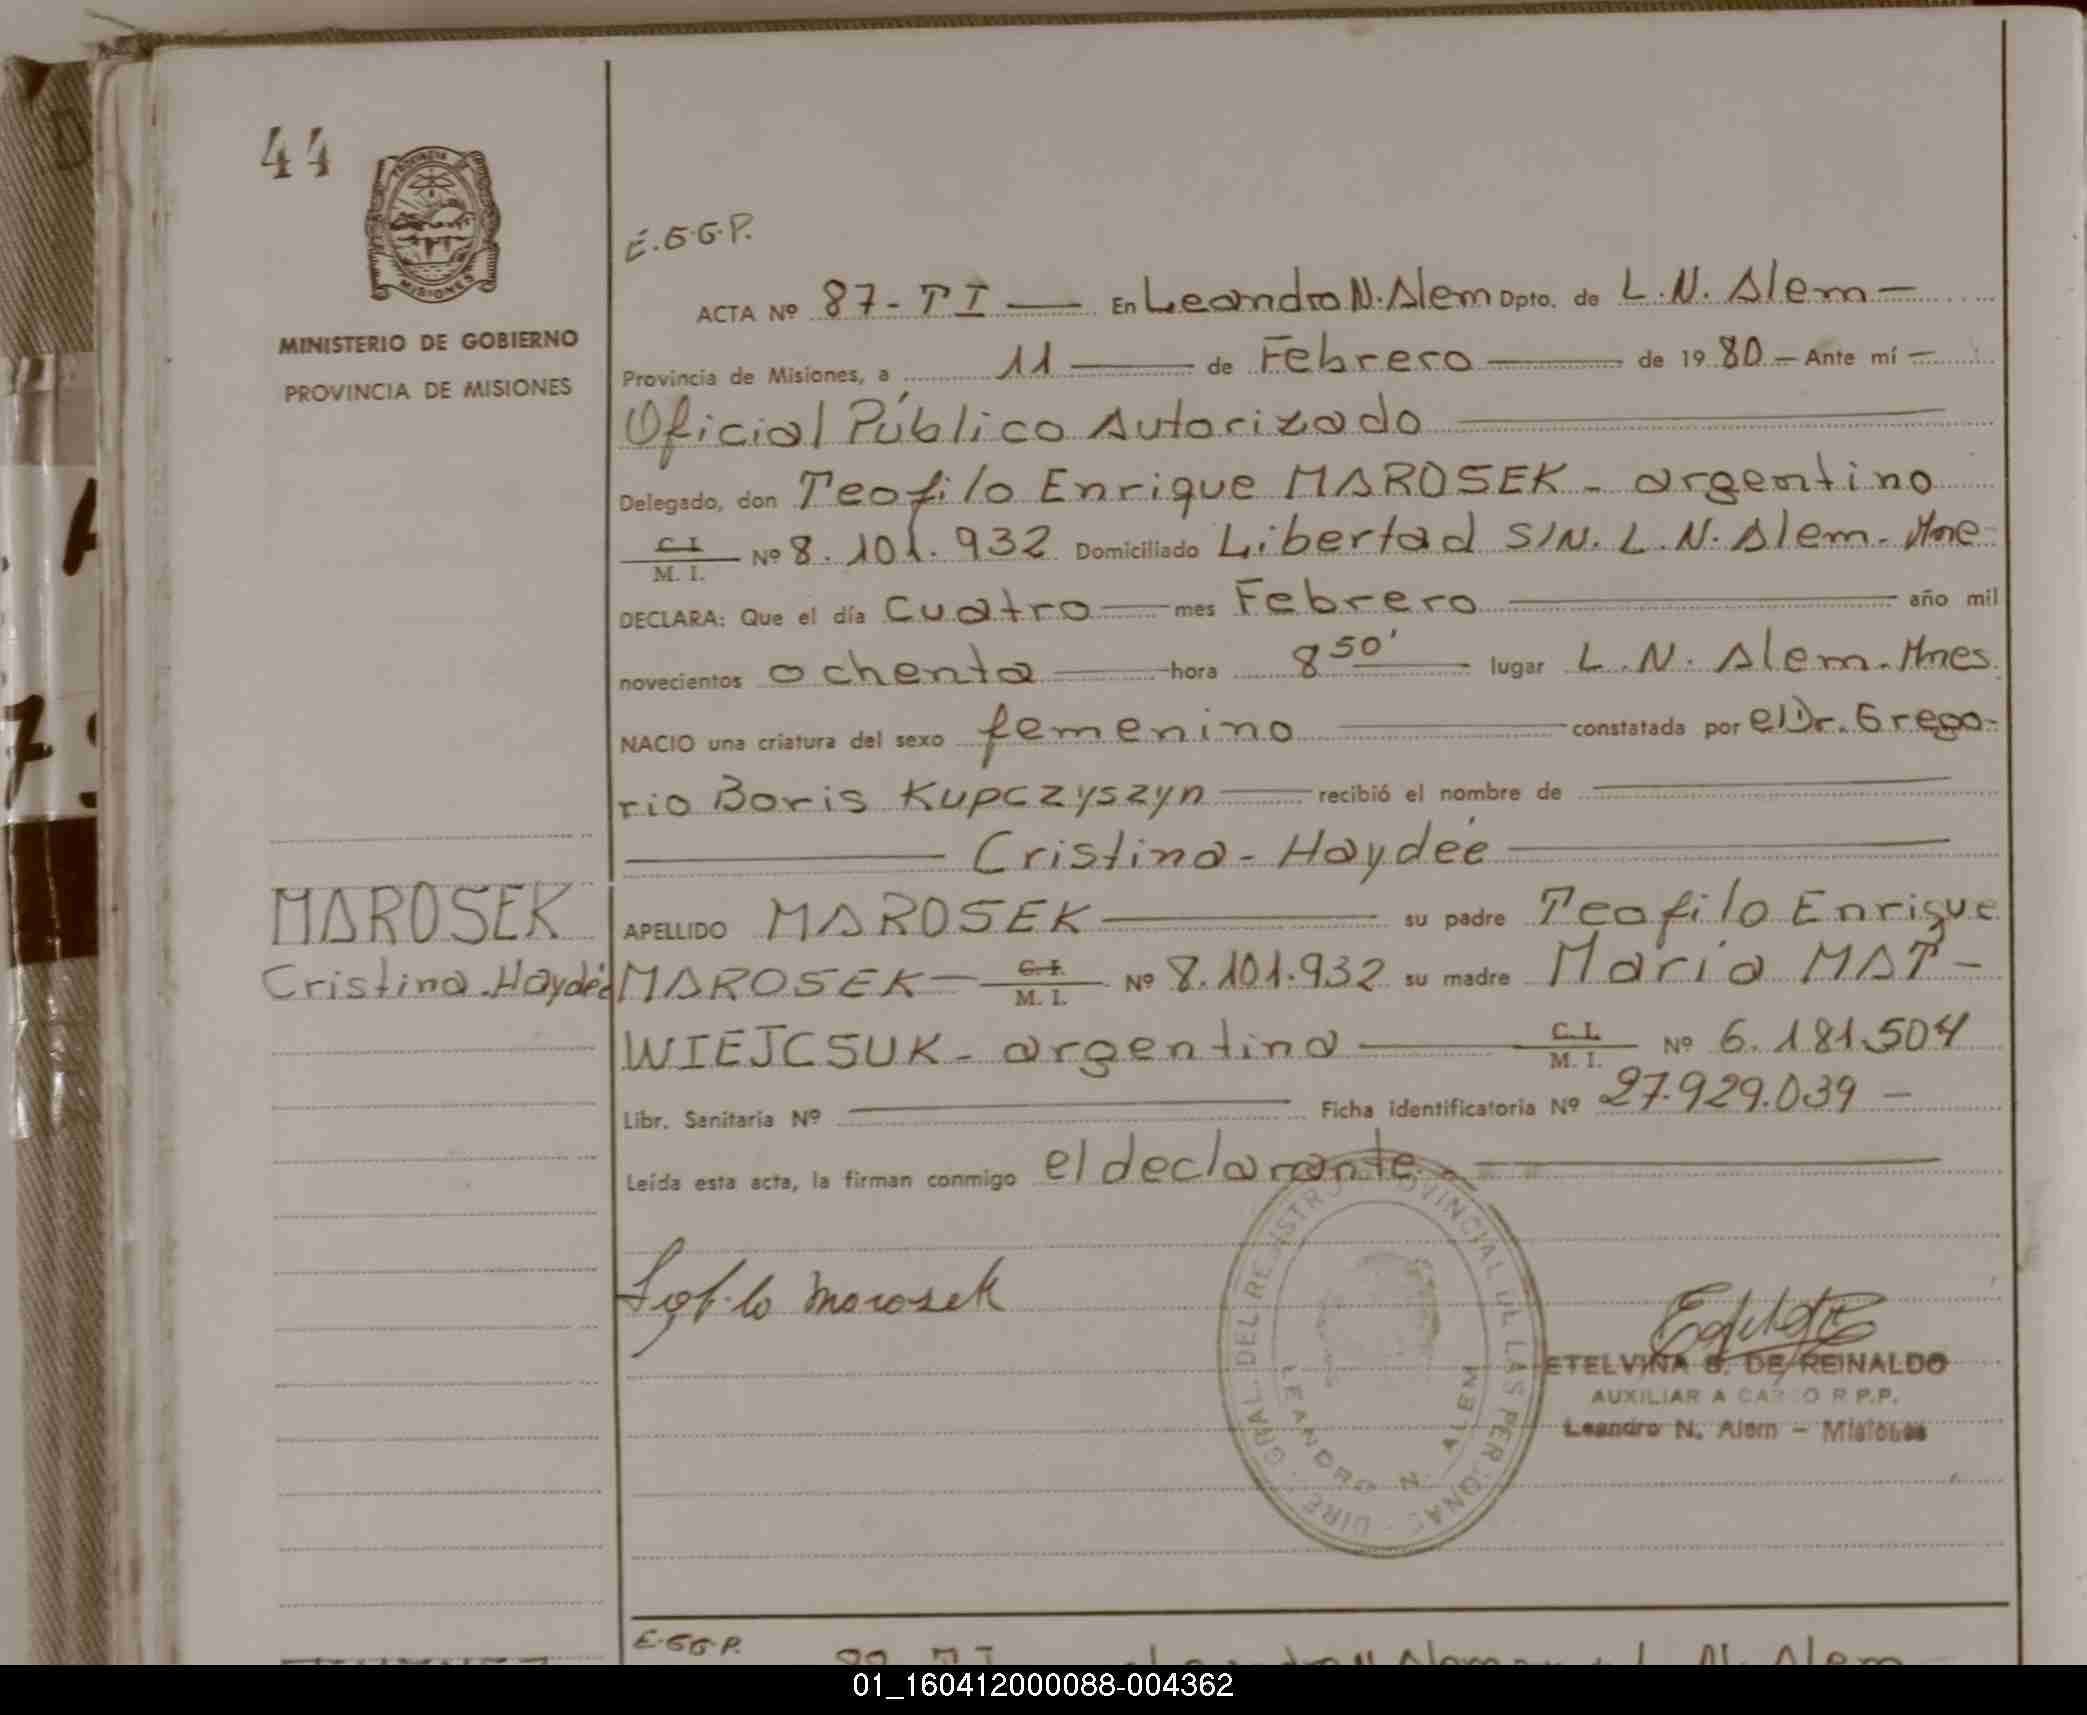 44
PROVINCIA DE
MISIONES
MINISTERIO DE GOBIERNO
PROVINCIA DE MISIONES
E.G.G.P.
ACTA Nº 87-TI — En Leandro N. Alem Dpto. de L.N. Alem —
Provincia de Misiones, a 11 — de Febrero — de 1980 — Ante mí —
Oficial Público Autorizado —
Delegado, don Teofilo Enrique MAROSEK - argentino
C.I. M. I. Nº 8.101.932 Domiciliado Libertad S/N. L.N. Alem. Mne
DECLARA: Que el día cuatro — mes Febrero — año mil
novecientos ochenta — hora 8 50' — lugar L. N. Alem. Mnes.
NACIO una criatura del sexo femenino — constatada por el Dr. Grego-
rio Boris Kupczyszyn — recibió el nombre de —
— Cristina - Haydeé —
MAROSEK
Cristina. Haydeé
APELLIDO MAROSEK — su padre Teofilo Enrique
MAROSEK — C.I. M. I. Nº 8.101.932 su madre Maria MAT-
WIEJCSUK - argentina — C.I. M. I. Nº 6.181.504
Libr. Sanitaria Nº — Ficha identificatoria Nº 27.929.039 —
Leída esta acta, la firman conmigo el declarante. —
Teofilo Marosek
DIRE. GRAL. DEL REGISTRO PROVINCIAL DE LAS PERSONAS
LEANDRO N. ALEM
ETELVINA G. DE REINALDO
AUXILIAR A CARGO R.P.P.
Leandro N. Alem - Misiones
E.G.G.P.
01_160412000088-004362